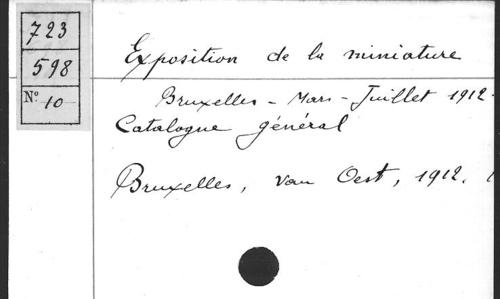 723
598
N° 10
Exposition de la miniature
Bruxelles - Mars - Juillet 1912 -
Catalogue général
Bruxelles, van Oest, 1912.